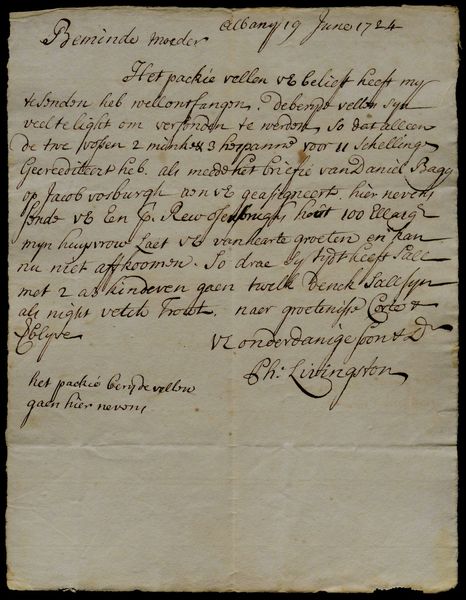 Albany 19 June 1724
Beminde Moeder
Het packie vellen UE belieft heeft my
te senden heb well ontfangen. de vellen syn
veel te light om versonden te werden, so dat alleen
de twe vossen 2 minks & 3 voor 11 Schellings
Gecrediteert heb. als mede het briefie van Daniel Bagg
op Jacob vosburgh aen UE geassigneert. hier nevens
sende UE Een hout 100 Ell
myn huysvrow Laet UE van hearte groeten en kan
nu niet aff koomen. So drae sy tydt heeft Sall
met 2 a 3 kinderen gaen twelk Denck Sall syn
als night vetch Trout. naer groetenisse Corte &
Eblyve
UE onderdanige soon & Dr
Ph: Livingston
het packie vellen
gaen hier nevens